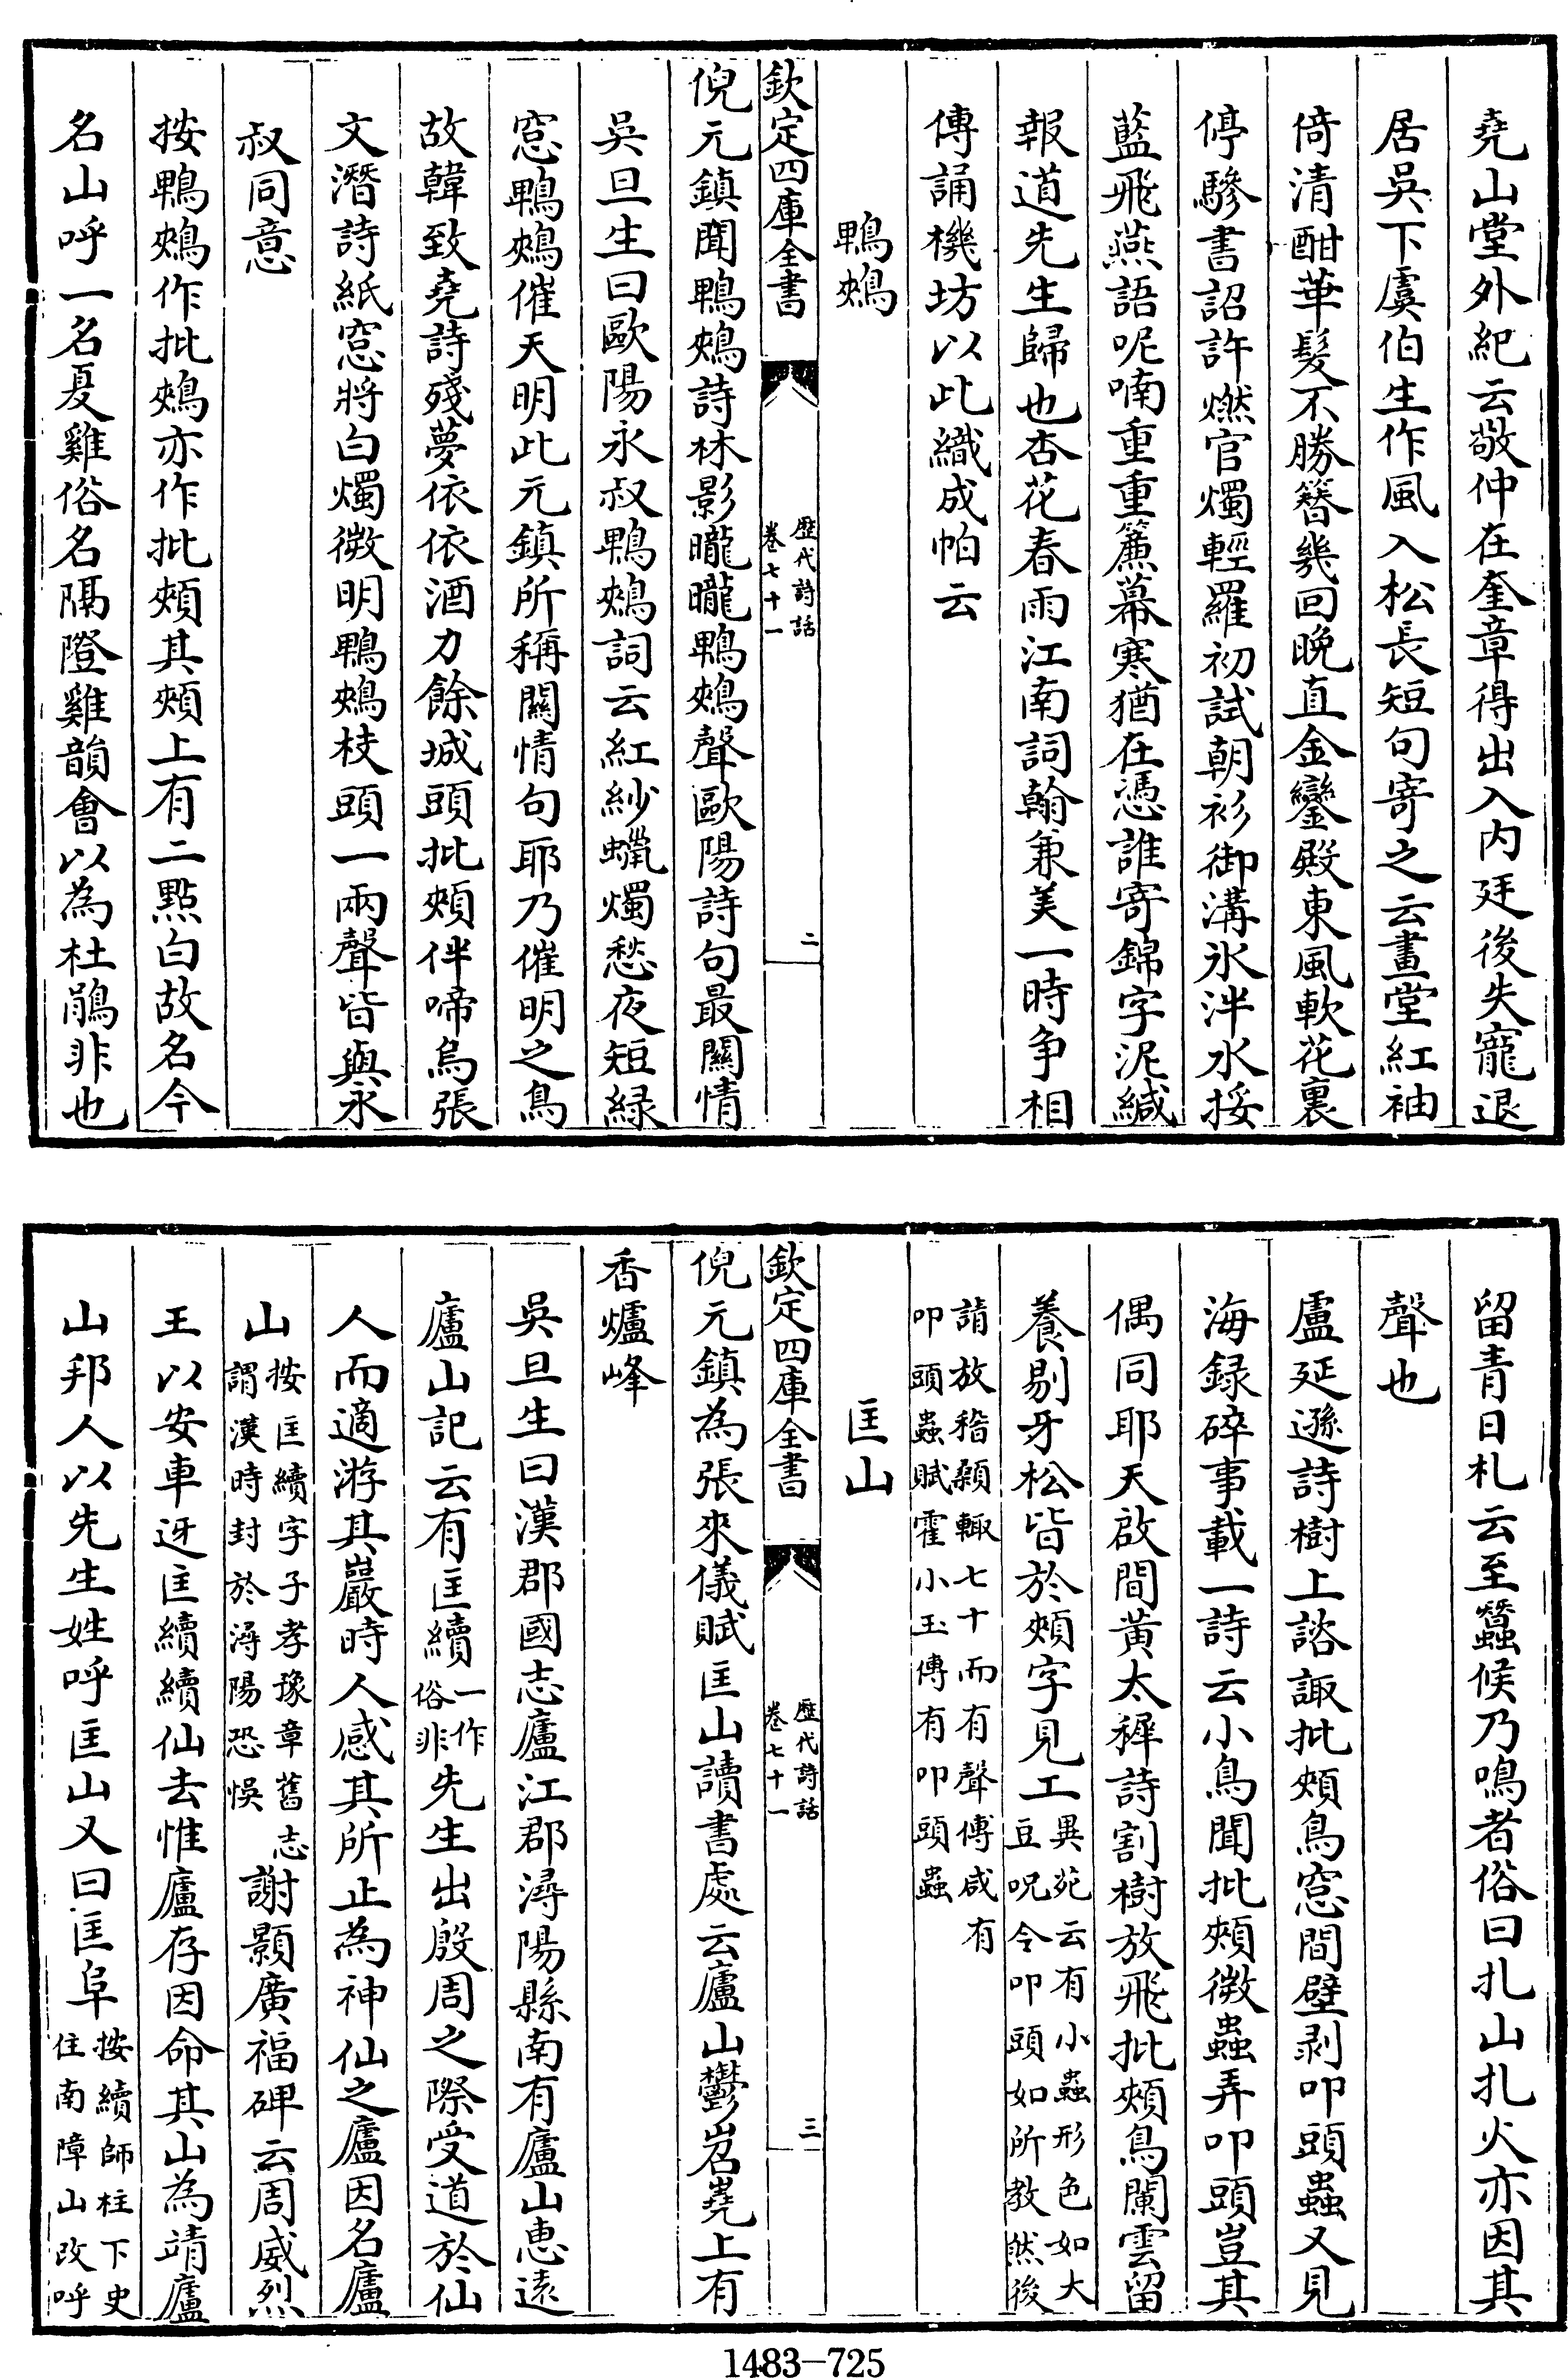 堯山堂外紀云敬仲在奎章得出入内廷後失寵退
居吳下虞伯生作風入松長短句寄之云畫堂紅袖
倚清酣華髮不勝簪幾回晚直金鑾殿東風軟花裏
停驂書詔許燃官燭輕羅初試朝衫御溝氷泮水挼
藍飛燕語呢喃重重簾幕寒猶在憑誰寄錦字泥緘
報道先生歸也杏花春雨江南詞翰兼美一時争相
傳誦機坊以此織成帕云
鵯鵊
欽定四庫全書
歴代詩話
卷七十一
二
倪元鎮聞鵯鵊詩林影曨曨鵯鵊聲歐陽詩句最關情
吳旦生曰歐陽永叔鵯鵊詞云紅紗蠟燭愁夜短緑
窓鵯鵊催天明此元鎮所稱關情句耶乃催明之鳥
故韓致堯詩殘夢依依酒力餘城頭批頰伴啼烏張
文潛詩紙窓將白燭微明鵯鵊枝頭一兩聲皆與永
叔同意
按鵯鵊作批鵊亦作批頰其頰上有二點白故名今
名山呼一名夏雞俗名隔隥雞韻會以為杜鵑非也
留青日札云至蠶候乃鳴者俗曰扎山扎火亦因其
聲也
盧延遜詩樹上諮諏批頰鳥窓間壁剥叩頭蟲又見
海録碎事載一詩云小鳥聞批頰微蟲弄叩頭豈其
偶同耶天啟間黄太穉詩割樹放飛批頰鳥闌雲留
養剔牙松皆於頰字見工
異苑云有小蟲形色如大
豆呪令叩頭如所教然後
請放稽顙輙七十而有聲傅咸有
叩頭蟲賦霍小玉傳有叩頭蟲
匡山
欽定四庫全書
歴代詩話
卷七十一
三
倪元鎮為張來儀賦匡山讀書處云廬山鬱岧嶤上有
香爐峰
吳旦生曰漢郡國志廬江郡潯陽縣南有廬山惠遠
廬山記云有匡續
一作
俗非
先生出殷周之際受道於仙
人而適游其巖時人感其所止為神仙之廬因名廬
山
按匡續字子孝豫章舊志
謂漢時封於潯陽恐悞
謝顥廣福碑云周威烈
王以安車迓匡續續仙去惟廬存因命其山為靖廬
山邦人以先生姓呼匡山又曰匡阜
按續師柱下史
住南障山改呼
1483-725